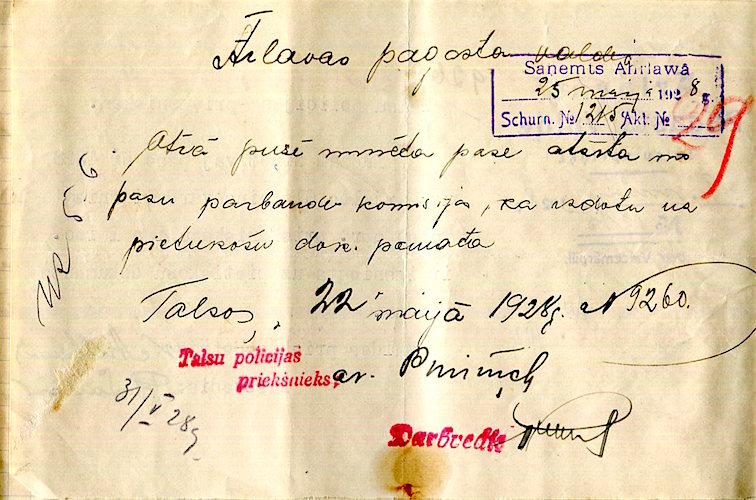 Ārlavas pagasta valdei
Saņemts Ahrlawâ
25 maijā 1928 g.
Schurn. № 1215 Akt: №
29
Otrā pusē minēta pase atsūta no
pasu parbaude komisijas, ka izdota uz
pietiekošu dok. pamata
Talsos, 22 maijā 1928 g. N 9260.
Talsu policijas
priekšnieks, av.
Darbvedis
31/V 28 g